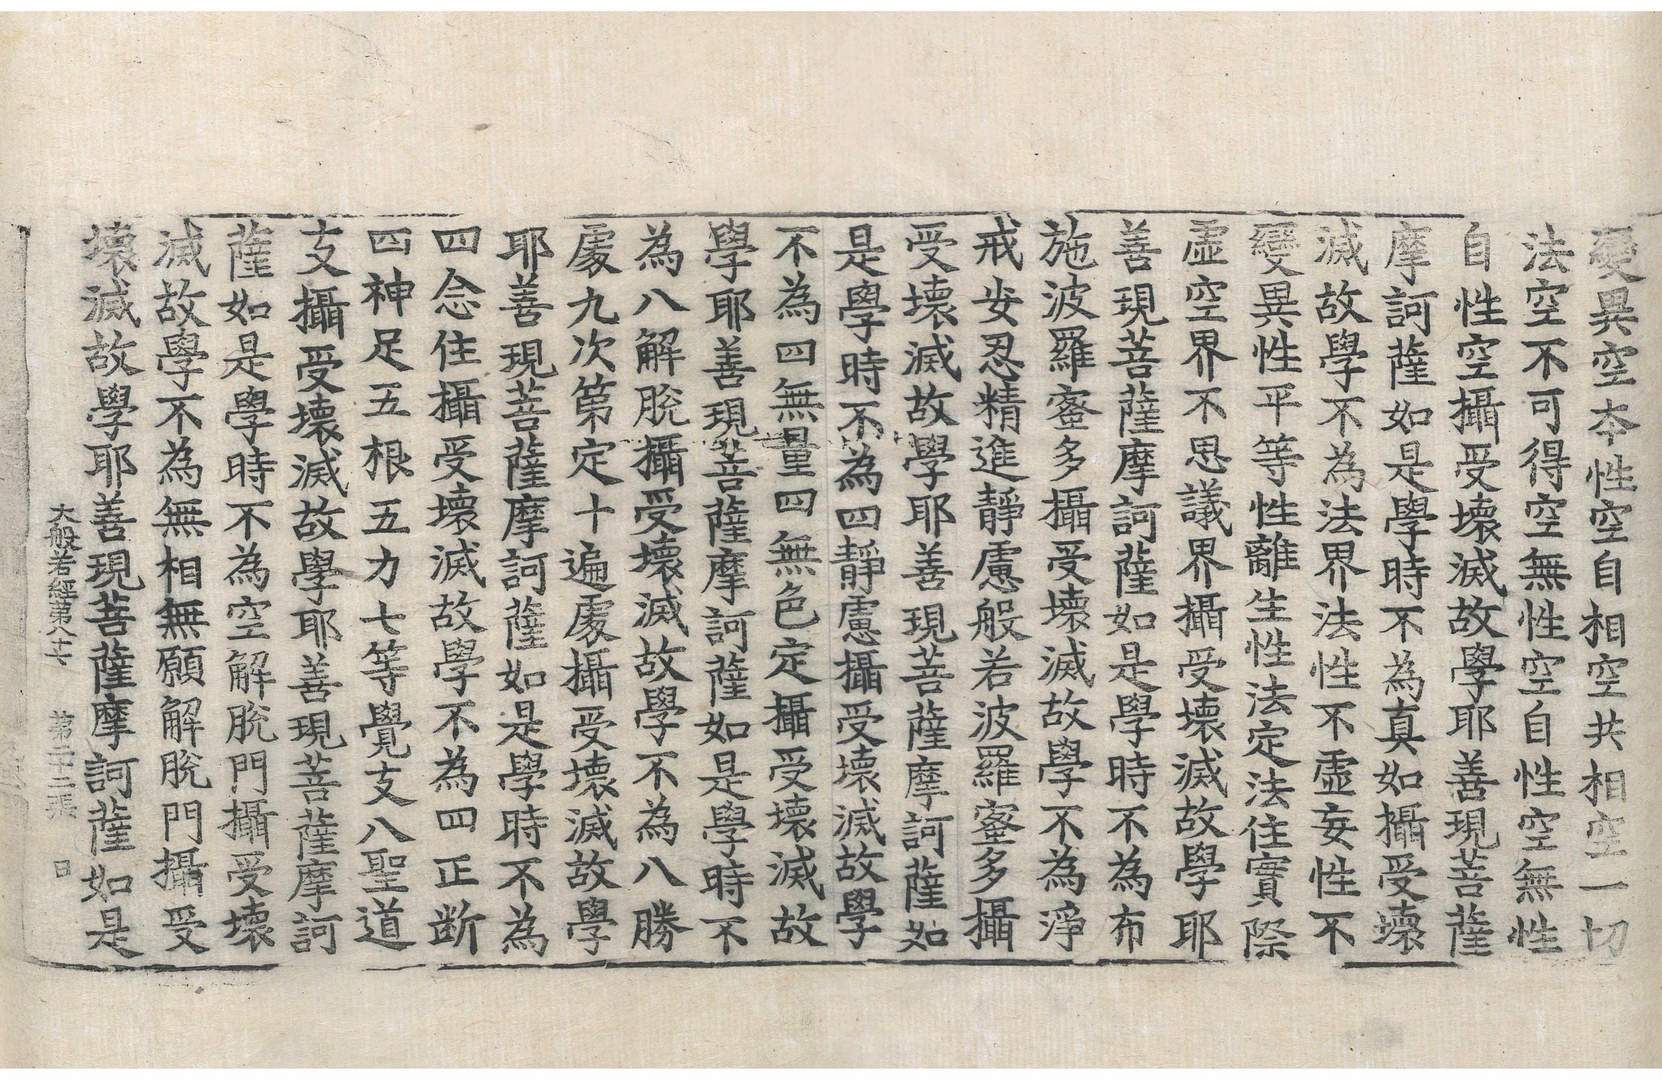 變異空本性空自相空共相空一切
法空不可得空無性空自性空無性
自性空攝受壞滅故學耶善現菩薩
摩訶薩如是學時不為真如攝受壞
滅故學不為法界法性不虛妄性不
變異性平等性離生性法定法住實際
虛空界不思議界攝受壞滅故學耶
善現菩薩摩訶薩如是學時不為布
施波羅蜜多攝受壞滅故學不為淨
戒安忍精進靜慮般若波羅蜜多攝
受壞滅故學耶善現菩薩摩訶薩如
是學時不為四靜慮攝受壞滅故學
不為四無量四無色定攝受壞滅故
學耶善現菩薩摩訶薩如是學時不
為八解脫攝受壞滅故學不為八勝
處九次第定十遍處攝受壞滅故學
耶善現菩薩摩訶薩如是學時不為
四念住攝受壞滅故學不為四正斷
四神足五根五力七等覺支八聖道
支攝受壞滅故學耶善現菩薩摩訶
薩如是學時不為空解脫門攝受壞
滅故學不為無相無願解脫門攝受
壞滅故學耶善現菩薩摩訶薩如是
大般若經第八十 第二十二張 日